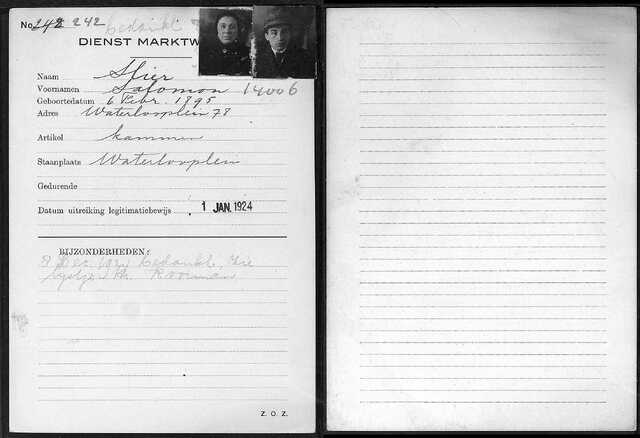 No. 242 242
bedankt
DIENST MARKTW
Naam Stier
Voornamen Salomon 14006
Geboortedatum 6 Febr. 1895
Adres Waterlooplein 78
Artikel kammen
Staanplaats Waterlooplein
Gedurende
Datum uitreiking legitimatiebewijs 1 JAN. 1924
BIJZONDERHEDEN:
8 Dec. bedankt. Zie
Z. O. Z.